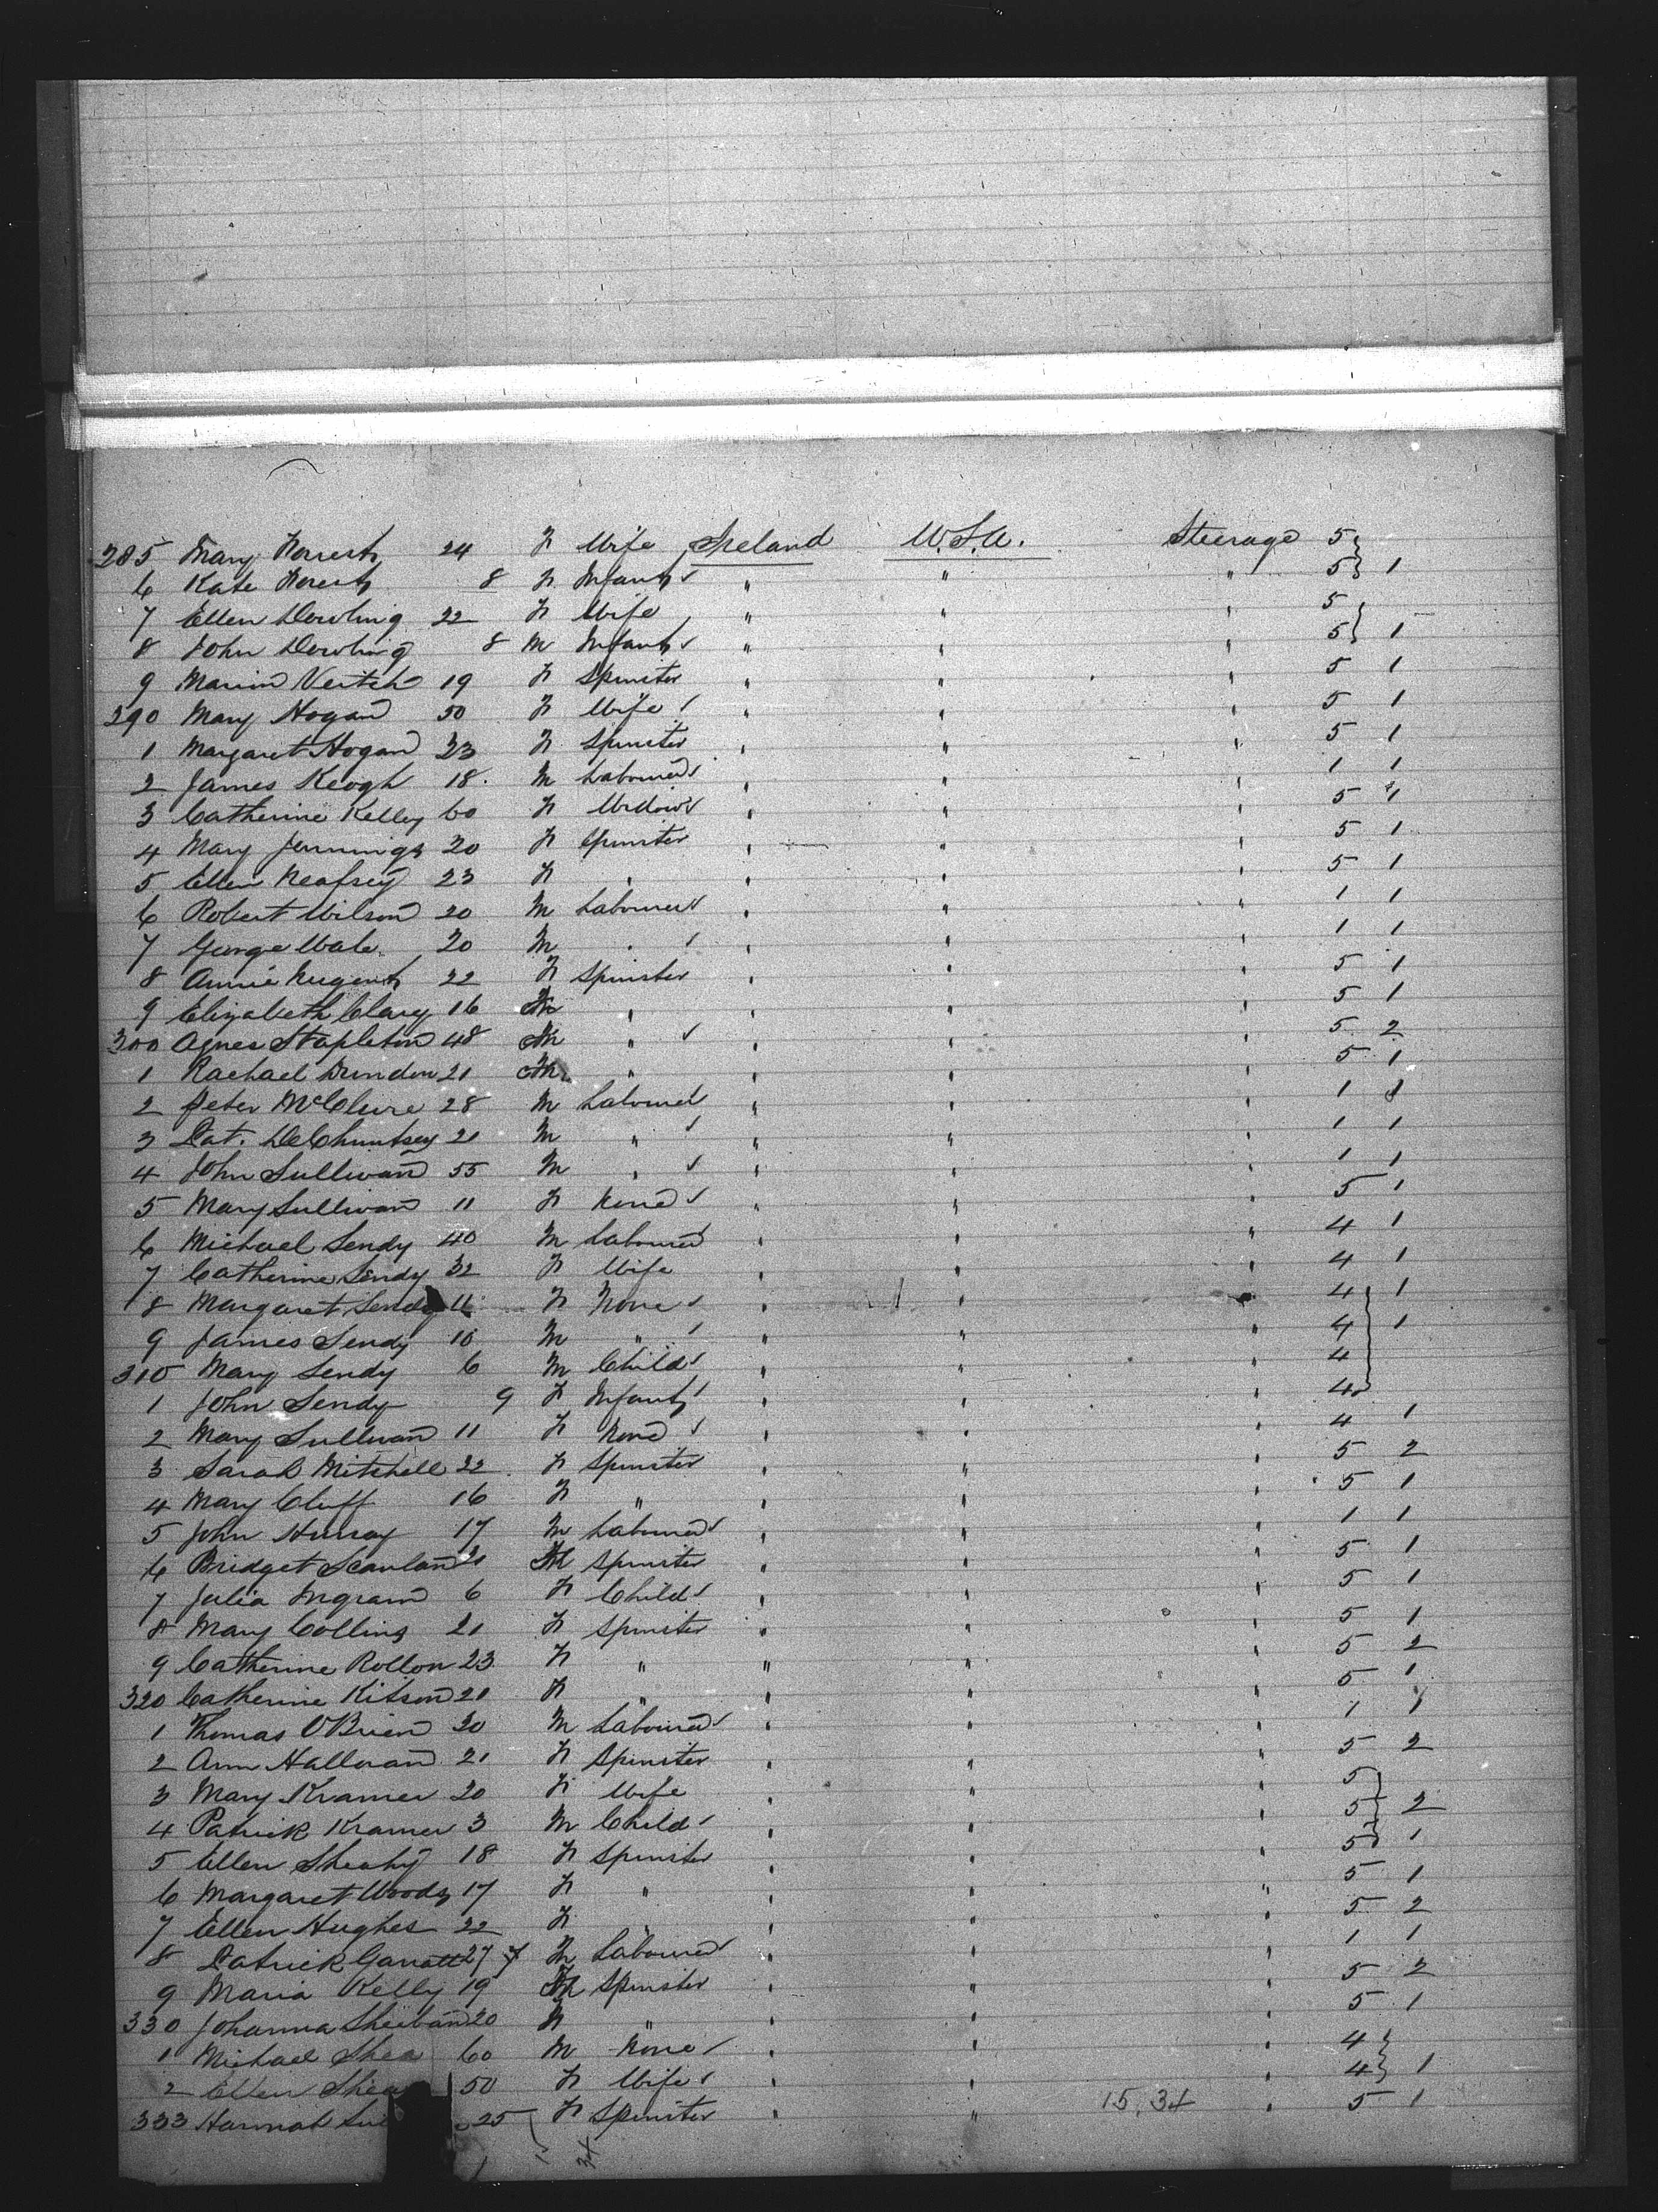 285 Mary Forrest 24 F Wife Ireland U.S.A. Steerage 5
6 Kate Forrest 8 F Infant " " " 5 1
7 Ellen Dowling 22 F Wife " " " 5
8 John Dowling 8 M Infant " " " 5 1
9 Marion Veitch 19 F Spinster " " " 5 1
290 Mary Hogan 50 F Wife " " " 5 1
1 Margaret Hogan 23 F Spinster " " " 5 1
2 James Keogh 18 M Labourer " " " 1 1
3 Catherine Kelly 60 F Widow " " " 5 1
4 Mary Jennings 20 F Spinster " " " 5 1
5 Ellen Neafsey 23 F " " " " 5 1
6 Robert Wilson 20 M Labourer " " " 1 1
7 George Wale 20 M " " " " 1 1
8 Annie Nugent 22 F Spinster " " " 5 1
9 Elizabeth Clary 16 F " " " " 5 1
300 Agnes Stapleton 48 F " " " " 5 2
1 Rachael Dundon 21 F " " " " 5 1
2 Peter McClure 28 M Labourer " " " 1 1
3 Pat. 21 M " " " " 1 1
4 John Sullivan 55 M " " " " 1 1
5 Mary Sullivan 11 F None " " " 5 1
6 Michael Sendy 40 M Labourer " " " 4 1
7 Catherine Sendy 32 F Wife " " " 4 1
8 Margaret Sendy 11 F None " " " 4 1
9 James Sendy 10 M " " " " 4 1
310 Mary Sendy 6 M Child " " " 4
1 John Sendy 9 F Infant " " " 4
2 Mary Sullivan 11 F None " " " 4 1
3 Sarah Mitchell 22 F Spinster " " " 5 2
4 Mary Cluff 16 F " " " " 5 1
5 John Murray 17 M Labourer " " " 1 1
6 Bridget Scanlan 21 F Spinster " " " 5 1
7 Julia Ingram 6 F Child " " " 5 1
8 Mary Collins 21 F Spinster " " " 5 1
9 Catherine Rollon 23 F " " " " 5 2
320 Catherine Kitson 21 F " " " " 5 1
1 Thomas O'Brien 30 M Labourer " " " 1 1
2 Ann Hallvan 21 F Spinster " " " 5 2
3 Mary Kramer 20 F Wife " " " 5
4 Patrick Kramer 3 M Child " " " 5 2
5 Ellen Sheahy 18 F Spinster " " " 5 1
6 Margaret Woods 17 F " " " " 5 1
7 Ellen Hughes 22 F " " " " 5 2
8 Patrick Garratt 27 M Labourer " " " 1 1
9 Maria Kelly 19 F Spinster " " " 5 2
330 Johanna Sheiban 20 F " " " " 5 1
1 Michael Shea 60 M None " " " 4
2 Ellen Shea 50 F Wife " " " 4 1
333 Hannah 25 F Spinster " " 15.34 " 5 1